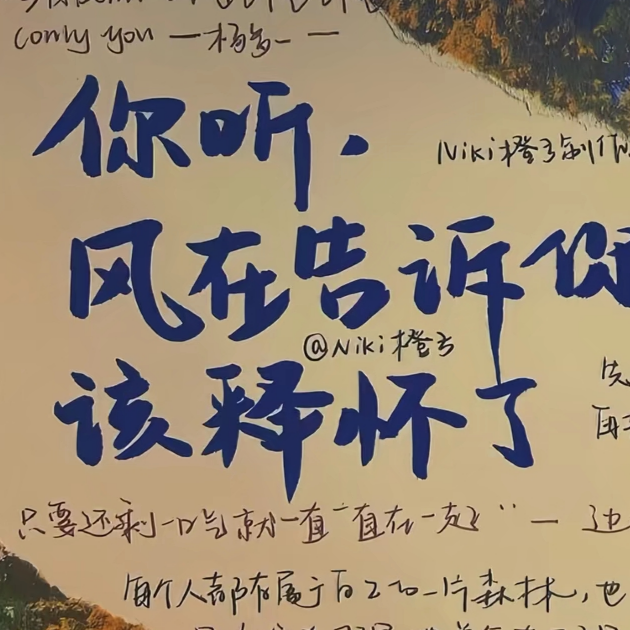 only you
Niki橙子制作
你听.
风在告诉你
@Niki橙子
该释怀了
只要还剩一口气就一直“直在一起” — 边
每个人都有属于自己的一片森林，也